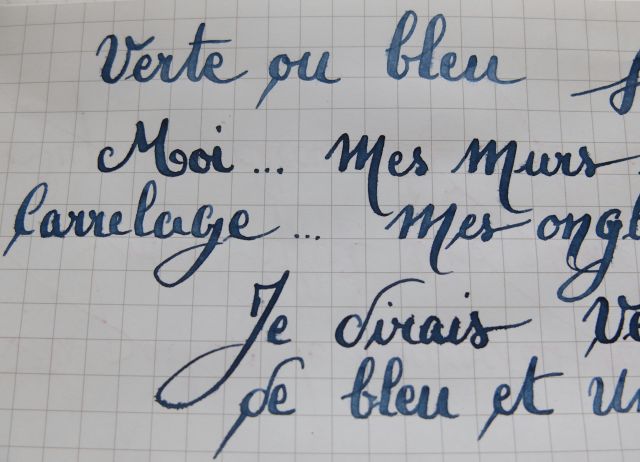 Verte ou bleu
Moi... mes murs
Carrelage... mes
Je dirais
de bleu et